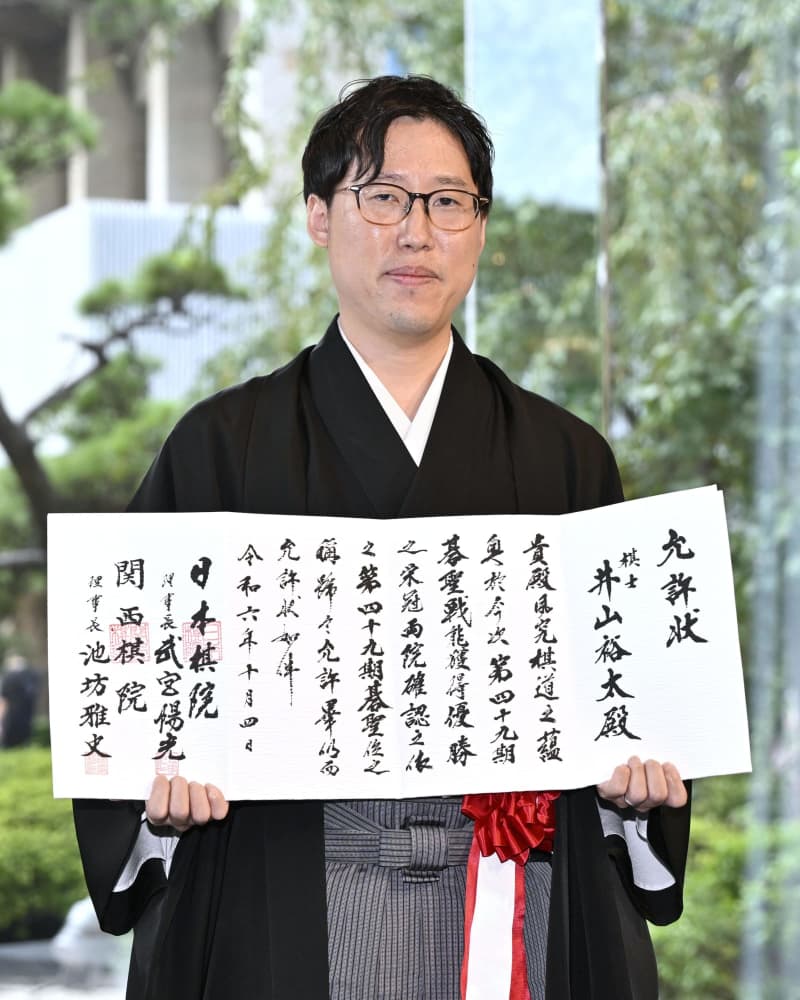 允許状
棋士
井山裕太殿
貴殿夙究棋道之蘊
奥於本次第四十九期
碁聖戦能獲得優勝
之栄冠両院確認之依
之第四十九期碁聖位之
称号令允許畢仍而
允許状如件
令和六年十月四日
日本棋院
理事長 武宮陽光
関西棋院
理事長 池坊雅史